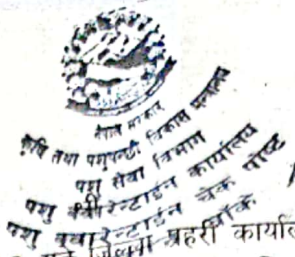 नेपाल सरकार
कृषि तथा पशुपन्छी विकास मन्त्रालय
पशु सेवा विभाग
पशु क्वारेन्टाईन कार्यालय
पशु क्वारेन्टाईन चेक पोष्ट
प्रहरी कार्याल